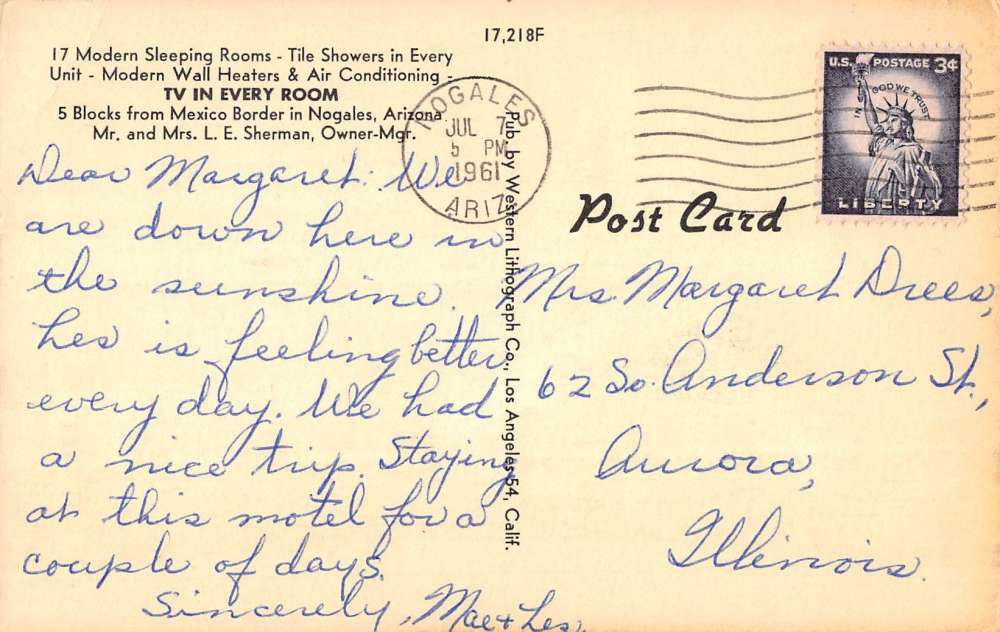 17,218F
17 Modern Sleeping Rooms - Tile Showers in Every
Unit - Modern Wall Heaters & Air Conditioning -
TV IN EVERY ROOM
5 Blocks from Mexico Border in Nogales, Arizona
Mr. and Mrs. L. E. Sherman, Owner-Mgr.
NOGALES
JUL 7
5 PM
1961
ARIZ
U.S. POSTAGE 3¢
IN GOD WE TRUST
LIBERTY
Post Card
Pub. by Western Lithograph Co., Los Angeles 54, Calif.
Dear Margaret: We
are down here in
the sunshine.
Les is feeling better
every day. We had
a nice trip. Staying
at this motel for a
couple of days.
Sincerely, Mae + Les.
Mrs. Margaret Drees,
62 So. Anderson St.,
Aurora,
Illinois.